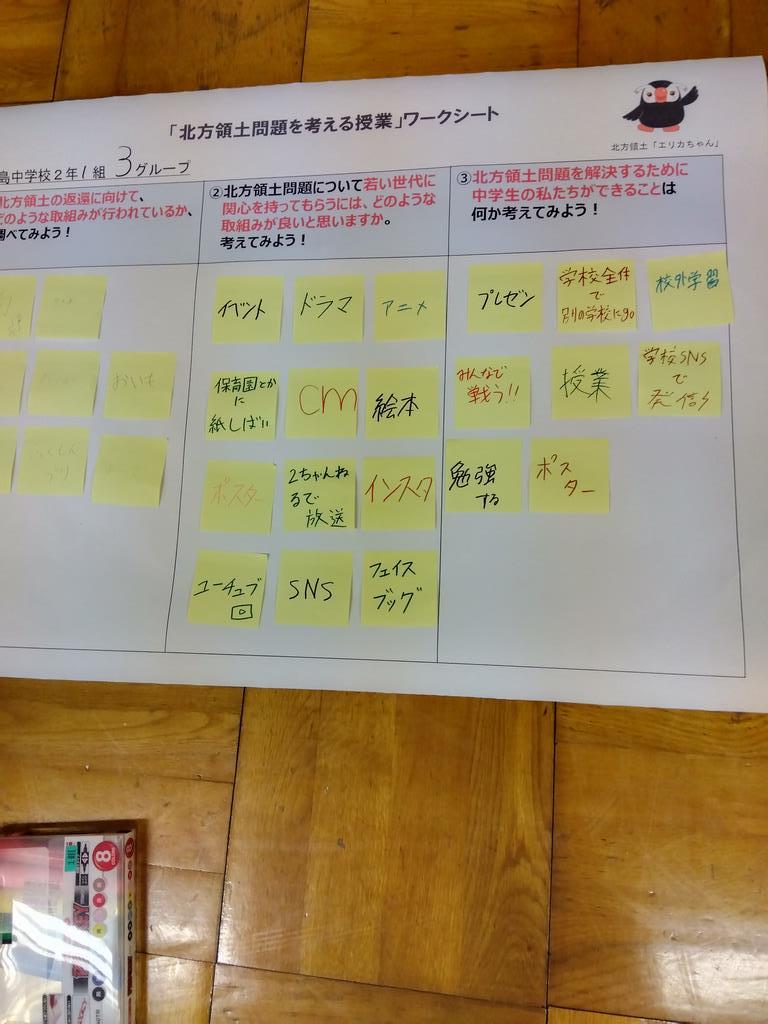 「北方領土問題を考える授業」ワークシート
北方領土「エリカちゃん」
島中学校2年1組 3グループ
北方領土の返還に向けて、
どのような取組みが行われているか、
調べてみよう！
おいも
②北方領土問題について若い世代に
関心を持ってもらうには、どのような
取組みが良いと思いますか。
考えてみよう！
イベント
ドラマ
アニメ
保育園とか
に
紙しばい
CM
絵本
ポスター
2ちゃんね
るで
放送
インスタ
ユーチュブ
SNS
フェイス
ブッグ
③北方領土問題を解決するために
中学生の私たちができることは
何か考えてみよう！
プレゼン
学校全体
で
別の学校にgo
校外学習
みんなで
戦う!!
授業
学校SNS
で
発信
勉強
する
ポス
ター
8